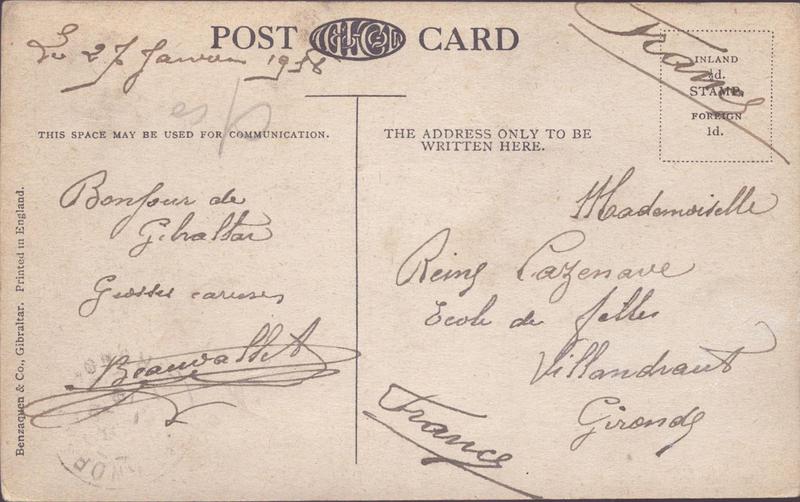 POST CARD
Le 27 Janvier 1938
France
INLAND
½d.
STAMP.
FOREIGN
1d.
THIS SPACE MAY BE USED FOR COMMUNICATION.
THE ADDRESS ONLY TO BE
WRITTEN HERE.
Bonjour de
Gibraltar
Grosses caresses
Beauvallet
Mademoiselle
Reine Cazenave
Ecole de filles
Villandraut
Gironde
France
Benzaquen & Co., Gibraltar. Printed in England.